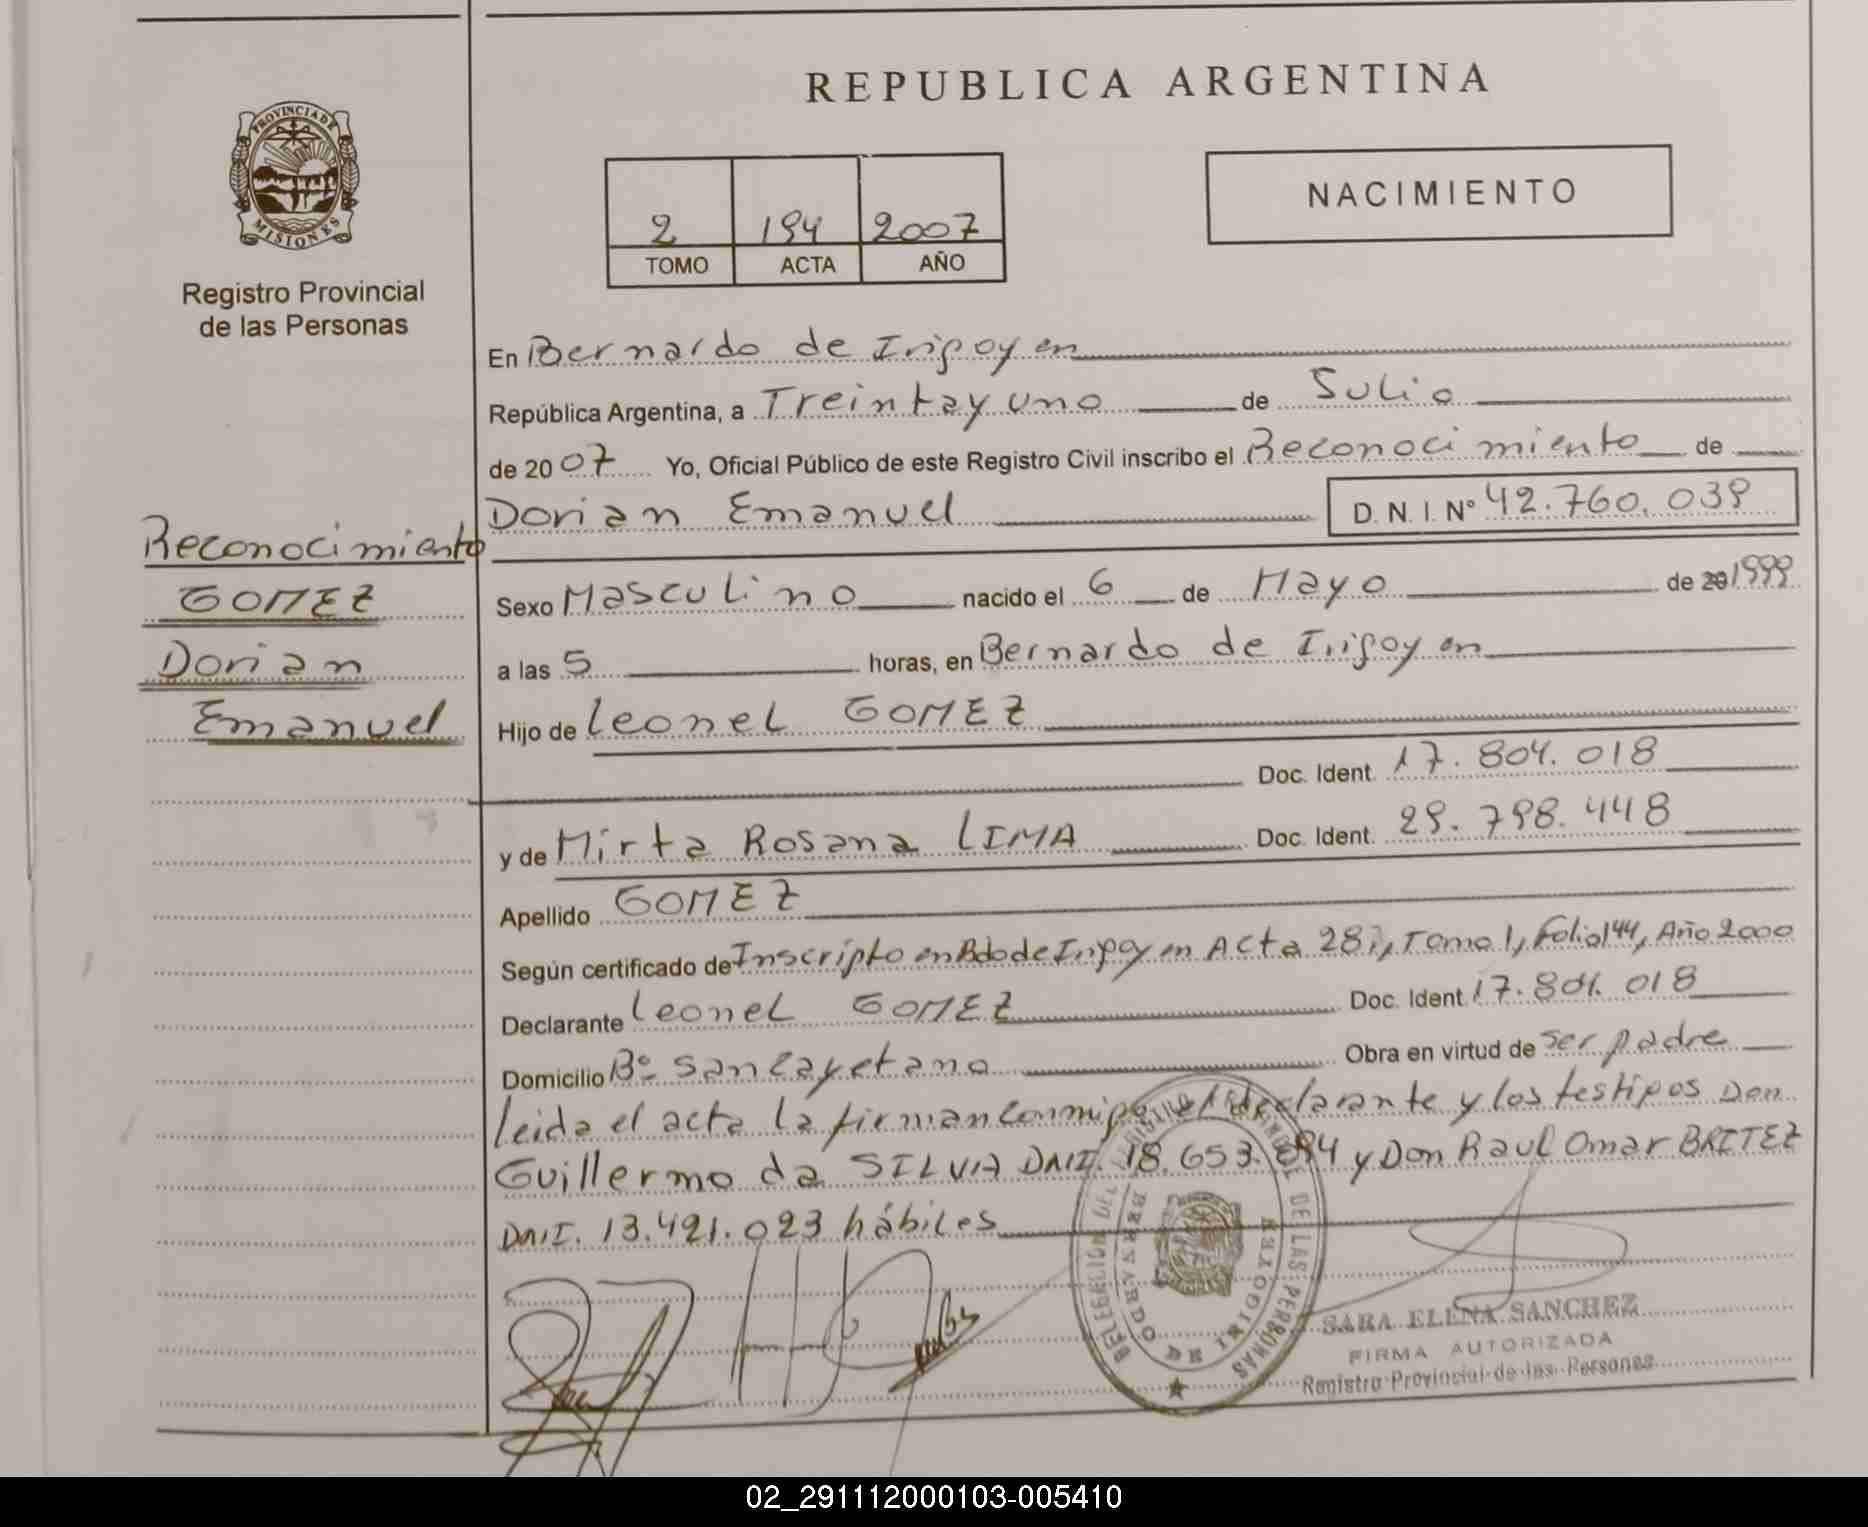 REPUBLICA ARGENTINA
PROVINCIA DE
MISIONES
Registro Provincial
de las Personas
2 194 2007
TOMO ACTA AÑO
NACIMIENTO
En Bernardo de Irigoyen
República Argentina, a Treintayuno de Julio
de 2007 Yo, Oficial Público de este Registro Civil inscribo el Reconocimiento de
Dorian Emanuel D. N. I. Nº 42.760.039
Reconocimiento
GOMEZ
Dorian
Emanuel
Sexo Masculino nacido el 6 de Mayo de 1999
a las 5 horas, en Bernardo de Irigoyen
Hijo de Leonel GOMEZ
Doc. Ident. 17.804.018
y de Mirta Rosana LIMA Doc. Ident. 29.798.448
Apellido GOMEZ
Según certificado de Inscripto en Bdo de Irigoyen Acta 287, Tomo 1, Folio 144, Año 2000
Declarante Leonel GOMEZ Doc. Ident 17.804.018
Domicilio Bº San Cayetano Obra en virtud de ser padre
leida el acta la firman conmigo el declarante y los testigos Don
Guillermo da SILVA DNI. 18.653.894 y Don Raul Omar BRITEZ
DNI. 13.421.023 hábiles
DELEGACION DEL REGISTRO PROVINCIAL DE LAS PERSONAS
BERNARDO DE IRIGOYEN
SARA ELENA SANCHEZ
FIRMA AUTORIZADA
Registro Provincial de las Personas
02_291112000103-005410